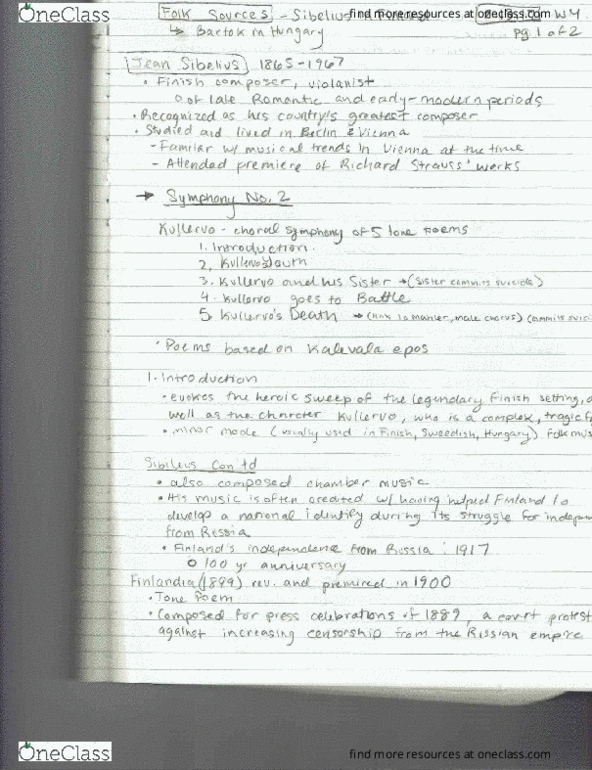 OneClass
find more resources at oneclass.com
Folk Sources - Sibelius
WY
↳ Bartok in Hungary
pg. 1 of 2
Jean Sibelius 1865-1967
• Finish composer, violanist
o of late Romantic and early-modern periods
• Recognized as his country's greatest composer
• Studied and lived in Berlin & Vienna
- Familar w/ musical trends in Vienna at the time
- Attended premiere of Richard Strauss' works
→ Symphony No. 2
Kullervo - choral symphony of 5 tone poems
1. Introduction.
2. Kullervo's Youth
3. Kullervo and his Sister → (Sister commits suicide)
4. Kullervo goes to Battle
5. Kullervo's Death → ( male chorus) (commits suici
• Poems based on Kalevala epos
1. Introduction
• evokes the heroic sweep of the legendary Finish setting, a
well as the character Kullervo, who is a complex, tragic f
• minor mode (usually used in Finish, Sweedish, Hungary) folk mus
Sibileus Con td
• also composed chamber music
• His music is often credited w/ having helped Finland to
develop a national identify during its struggle for indepen
from Russia
• Finland's independence from Russia : 1917
o 100 yr anniversary
Finlandia (1899) rev. and premired in 1900
• Tone Poem
• Composed for press celebrations of 1889, a covert protest
against increasing censorship from the Rissian empire
OneClass
find more resources at oneclass.com